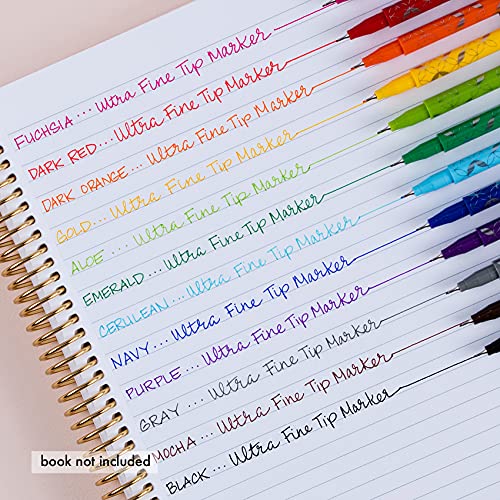 FUCHSIA... Ultra Fine Tip Marker
DARK RED... Ultra Fine Tip Marker
DARK ORANGE... Ultra Fine Tip Marker
GOLD... Ultra Fine Tip Marker
ALOE... Ultra Fine Tip Marker
EMERALD... Ultra Fine Tip Marker
CERULEAN... Ultra Fine Tip Marker
NAVY... Ultra Fine Tip Marker
PURPLE... Ultra Fine Tip Marker
GRAY... Ultra Fine Tip Marker
MOCHA... Ultra Fine Tip Marker
BLACK... Ultra Fine Tip Marker
book not included